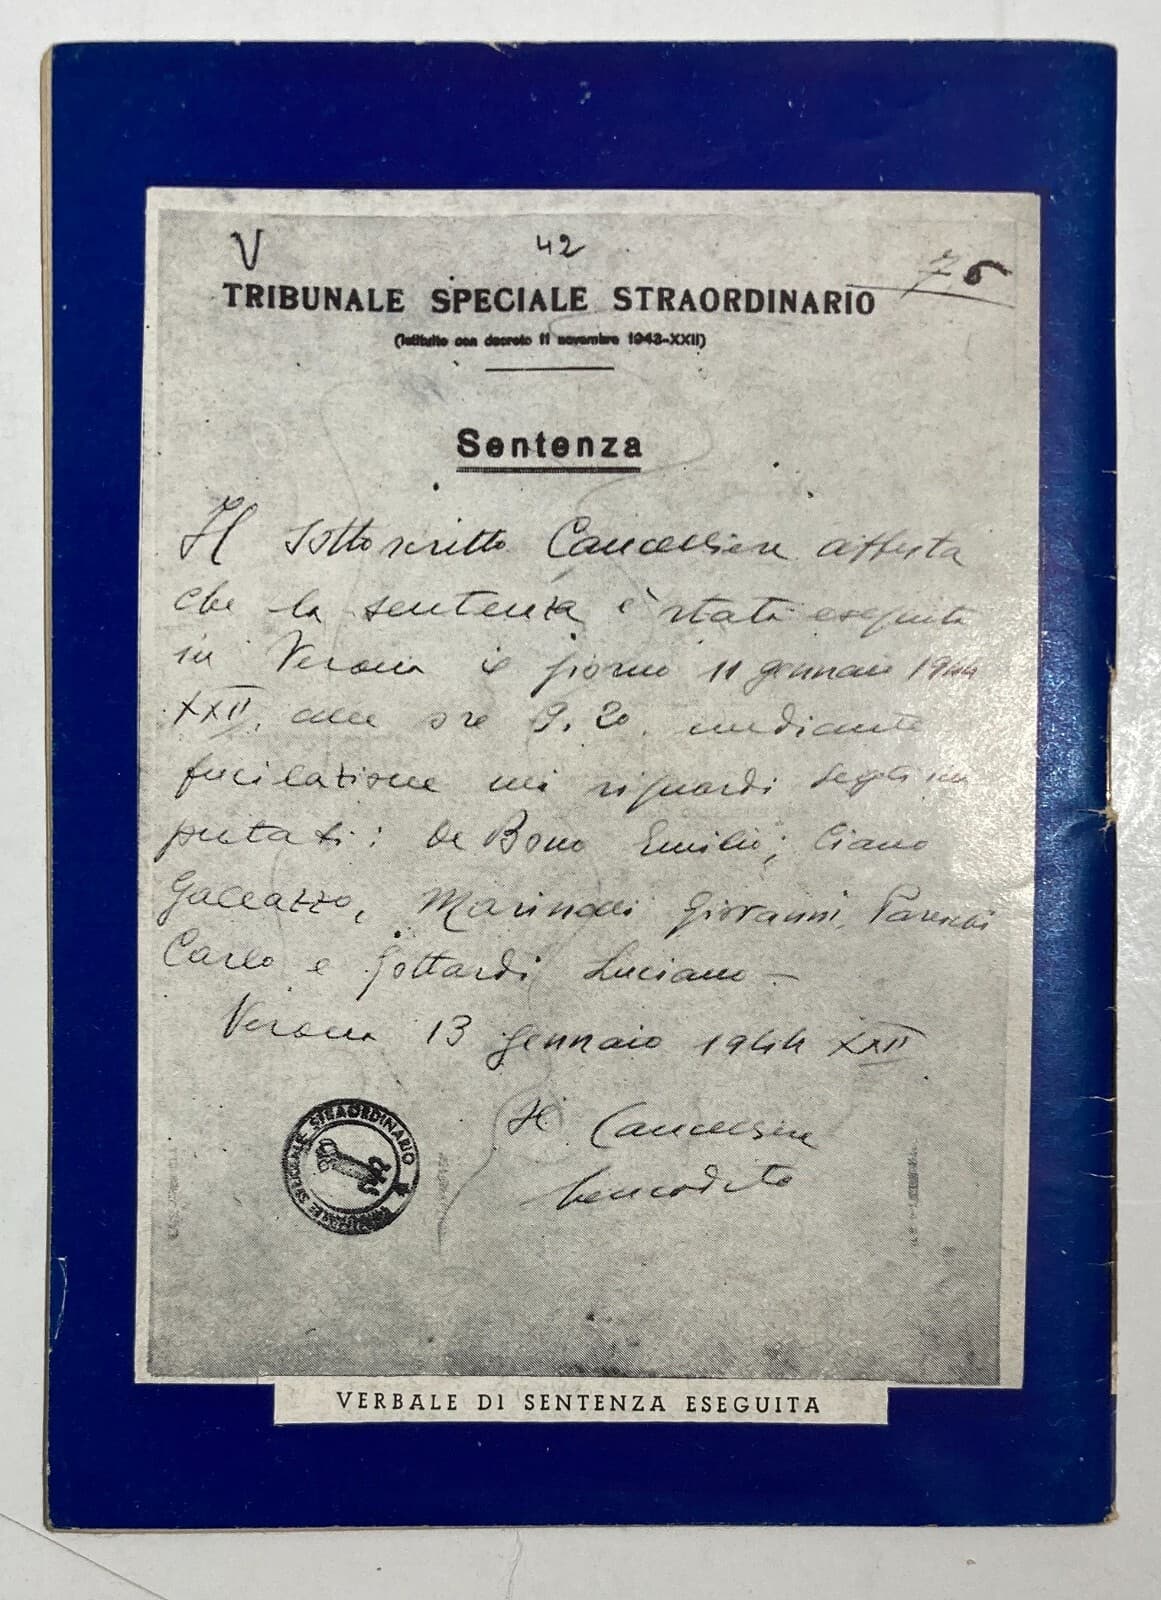 V 42 75
TRIBUNALE SPECIALE STRAORDINARIO
(Istituito con decreto 11 novembre 1943-XXII)
Sentenza
Il sottoscritto Cancelliere attesta
che la sentenza è stata eseguita
in Verona il giorno 11 gennaio 1944
XXII, alle ore 9.20. mediante
fucilazione nei riguardi degli im
putati: De Bono Emilio; Ciano
Galeazzo, Marinelli Giovanni, Pareschi
Carlo e Gottardi Luciano -
Verona 13 gennaio 1944 XXII
Il Cancelliere
TRIBUNALE SPECIALE STRAORDINARIO
VERBALE DI SENTENZA ESEGUITA